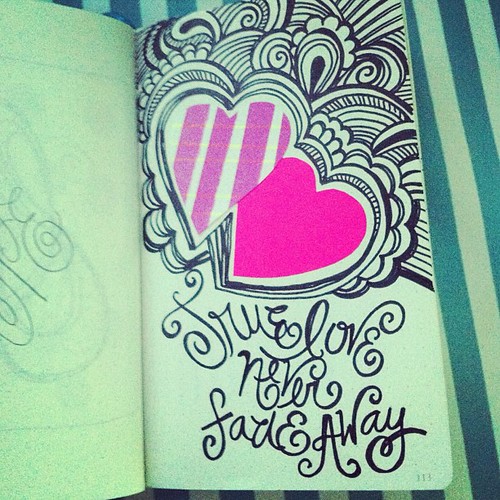 True love
never
fade Away
113